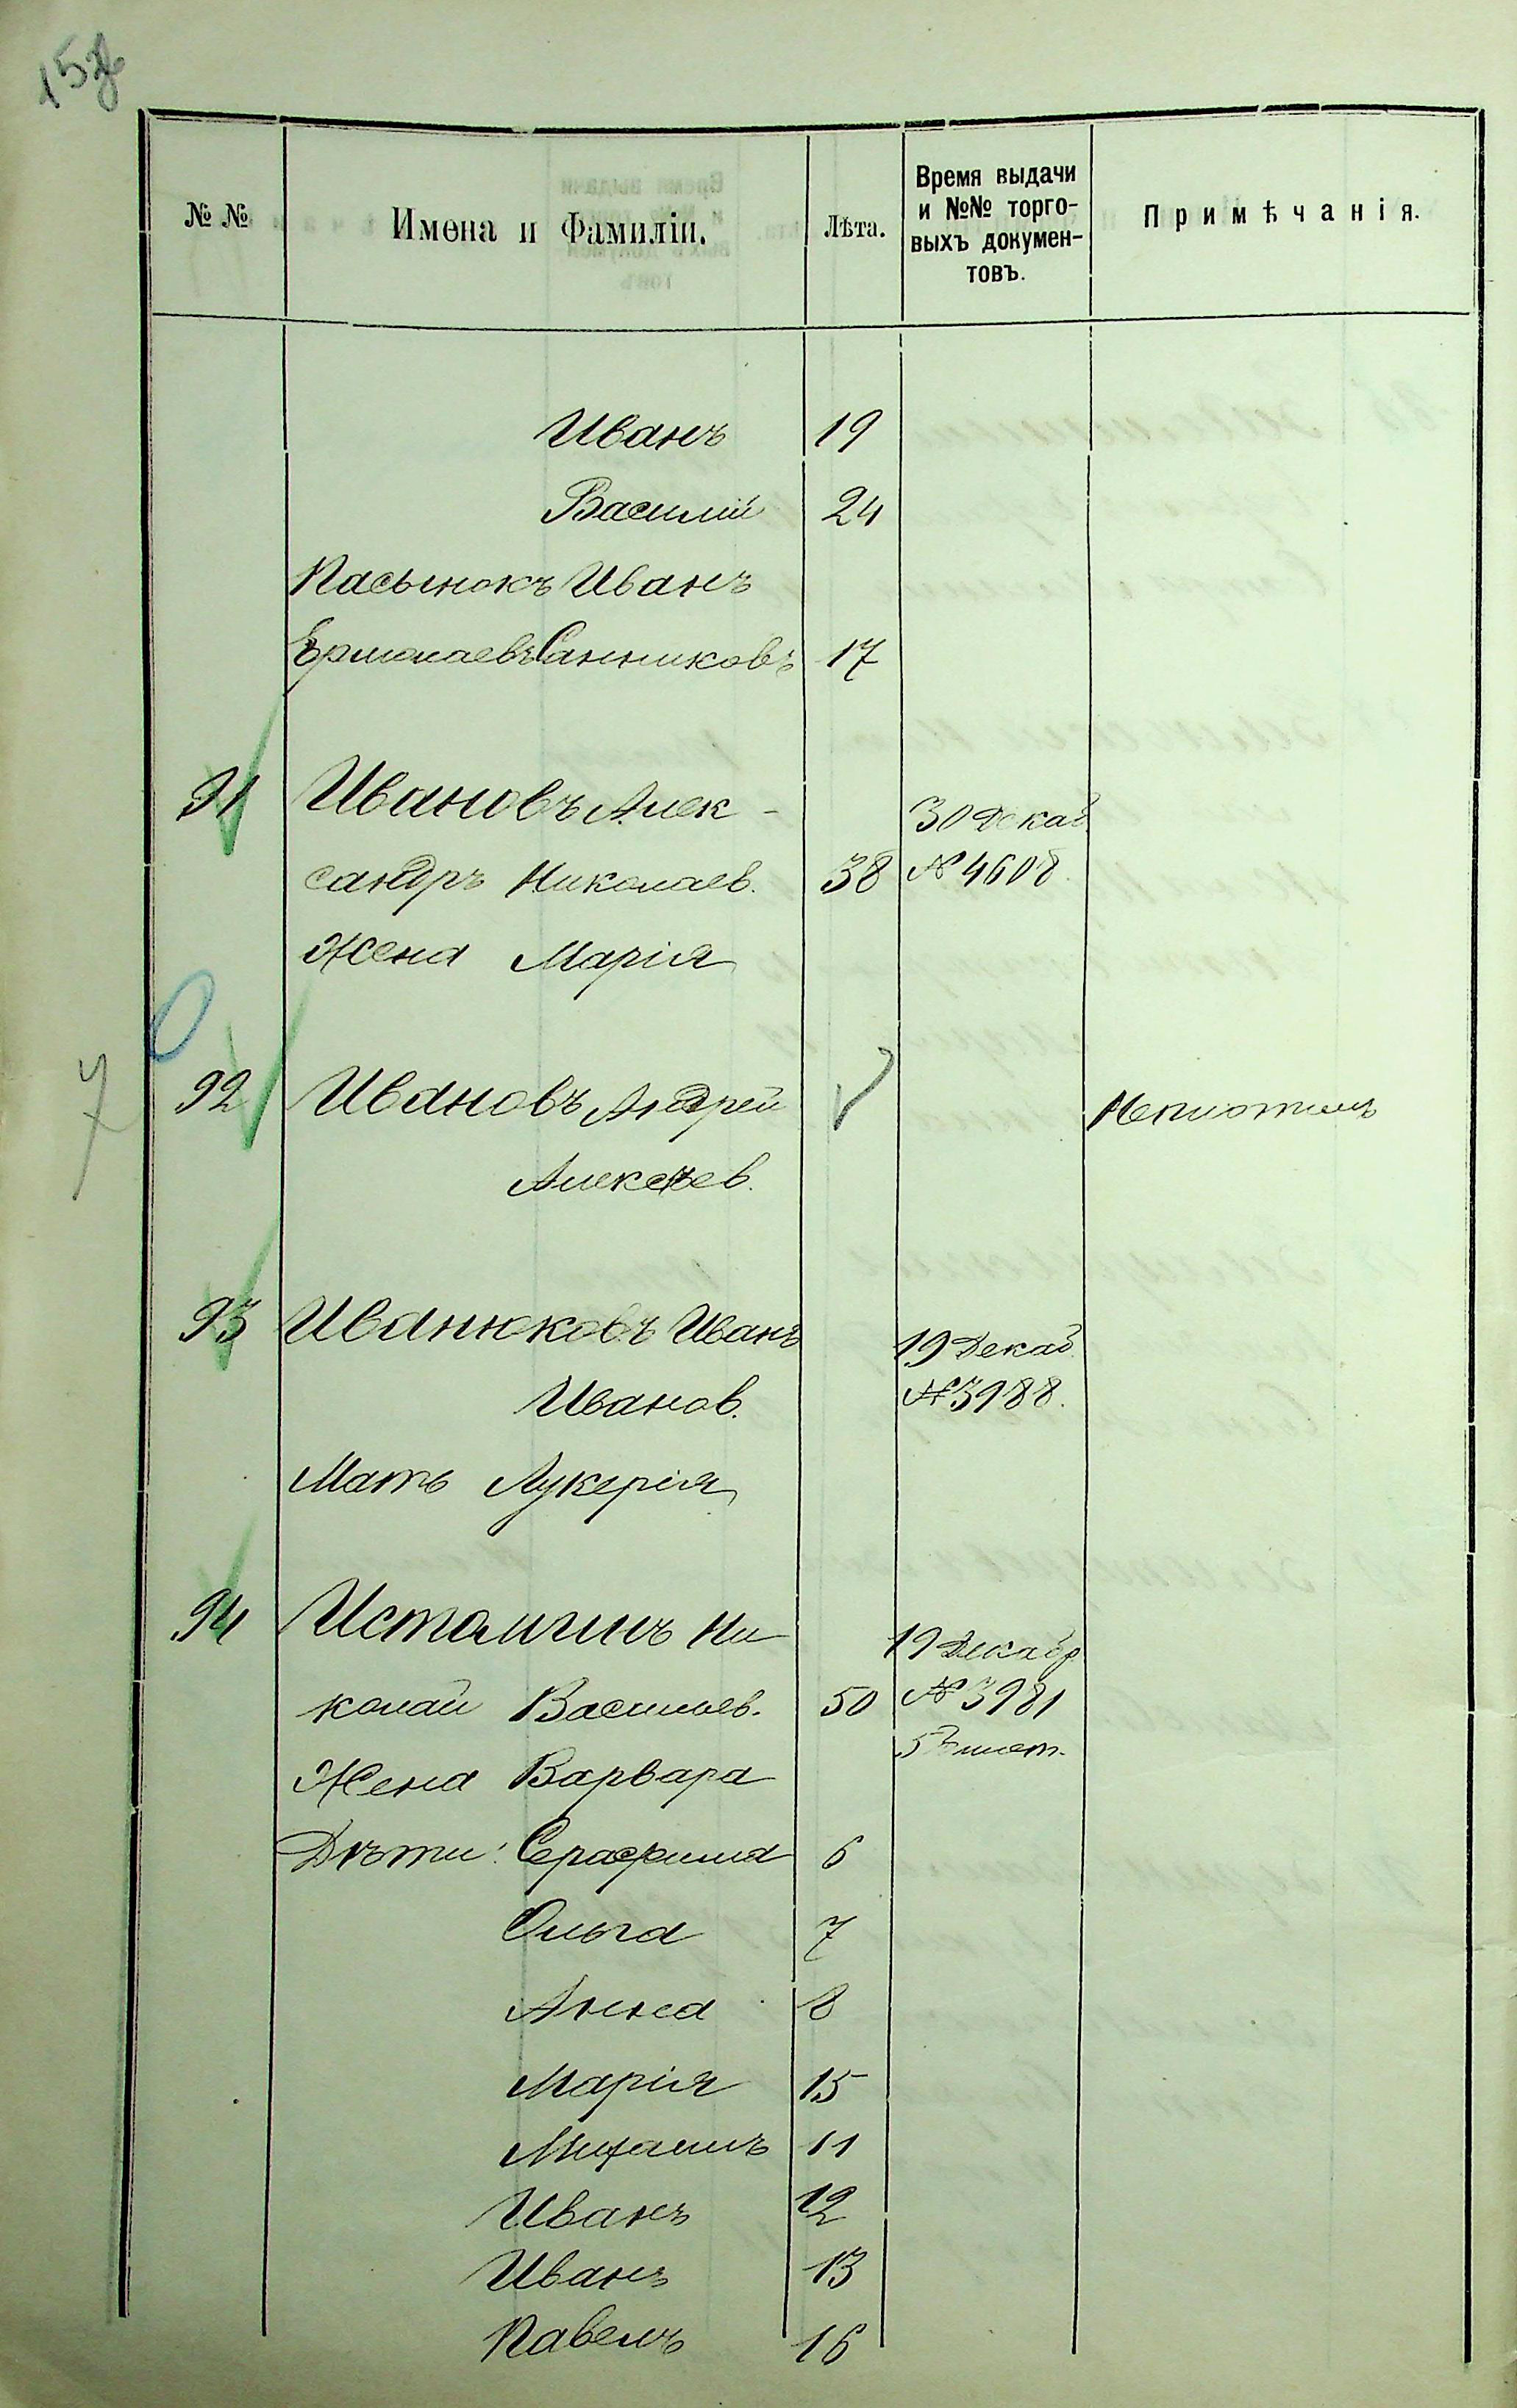 № №
Имена и Фамиліи.
Лѣта.
Время выдачи
и №№ торго-
выхъ докумен-
товъ.
Примѣчанія.
Иванъ 19
Василій 24
Пасынокъ Иванъ
Ермолаевъ Санниковъ 17
91 Ивановъ Алек- 30 Декаб
сандръ Николаев. 38 № 4608.
Жена Марія
92 Ивановъ Андрей
Алексѣев.
93 Иванюковъ Иванъ 19 Декаб
Иванов. № 3988.
Мать Лукерія
94 Истомгинъ Ни 19 Декабр
колай Васильев. 50 № 3981
Жена Варвара
Дѣти: Серафима 6
Ольга 7
Анна 8
Марія 15
Михаилъ 11
Иванъ 12
Иванъ 13
Павелъ 16